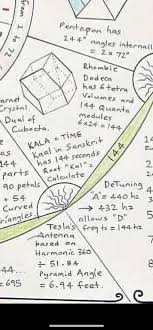 Pentagon has
244° angles internall
= 2 x 72°
from
to 72
Rhombic
Dodeca
has 6 tetra
Volumes and
144 Quanta
modules
6x24 = 144
Crystal
Dual of
Cubocta.
KALA = TIME
Kaal in Sanskrit
has 144 seconds
Root "Kal" =
Calculate
144
144
parts
90 petals
= 54
Curved
Triangles
DeTuning
"A" = 440 hz
→ 432 hz
allows "D"
freq to = 144 hz
Tesla's
Antenna
based on
Harmonic 360
÷ 51.84
Pyramid Angle
= 6.94 feet.
44...
= 695